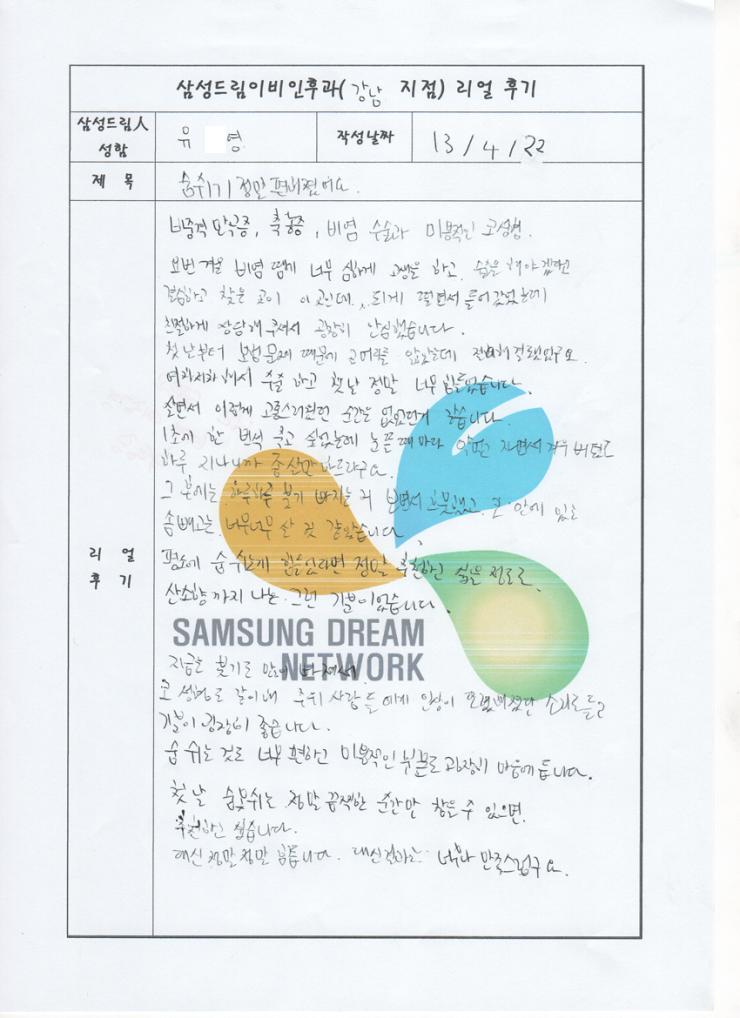 삼성드림이비인후과(강남 지점) 리얼 후기
삼성드림人 성함
유 영
작성날짜
13/4/22
제 목
숨쉬기 정말 편해졌어요.
리 얼 후 기
비중격 만곡증, 축농증, 비염 수술과 미용적인 코성형.
요번 겨울 비염 땜에 너무 심하게 고생을 하고, 수술을 해야겠다고
결심하고 찾은 곳이 이곳인데, 되게 떨면서 들어갔었는데
친절하게 상담해 주셔서 굉장히 안심했습니다.
첫날부터 보험문제 때문에 골머리를 앓았는데 해결됐었구요.
수술 하고 첫날 정말 너무 힘들었습니다.
살면서 이렇게 고통스러웠던 순간은 없었던거 같습니다.
1초에 한 번씩 죽고 싶었는데 눈 뜰 때마다 자면서 겨우 버텼고
하루 지나니까 좀 살만 하드라구요.
그 후에는 하루하루 붓기 빠지는 거 보면서 흐뭇했고, 코 안에 있는
솜 빼고는 너무너무 산 것 같았습니다.
평소에 숨 쉬는게 힘들었다면 정말 추천하고 싶을 정도로
산소향 까지 나는 그런 기분이었습니다.
SAMSUNG DREAM
NETWORK
지금은 붓기도 많이 빠져서
코 성형도 같이해 주위 사람들에게 인상이 소리도 듣고
기분이 굉장히 좋습니다.
숨 쉬는 것도 너무 편하고 미용적인 부분도 굉장히 마음에 듭니다.
첫날 숨못쉬는 정말 끔찍한 순간만 참을 수 있으면,
추천하고 싶습니다.
대신 정말 정말 힘듭니다. 대신 결과는 너무나 만족스럽구요.